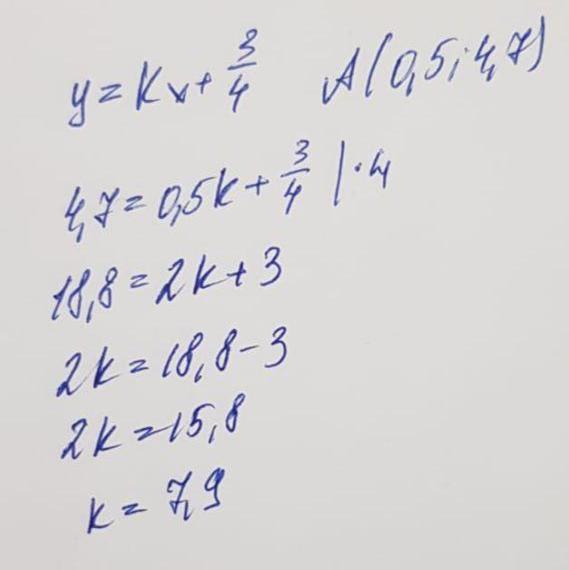 y = kx + 3/4 A(0,5; 4,7)
4,7 = 0,5k + 3/4 | · 4
18,8 = 2k + 3
2k = 18,8 - 3
2k = 15,8
k = 7,9